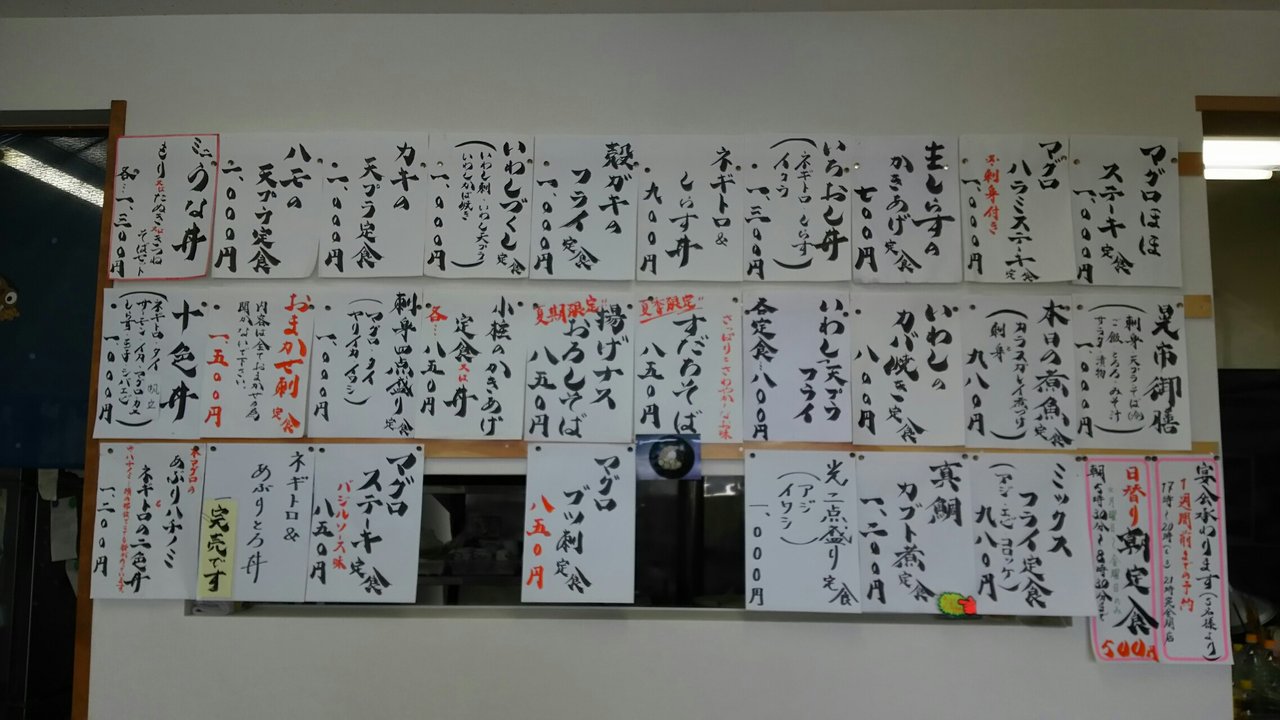 マグロほほ
ステーキ定食
一、一〇〇円
マグロ
ハラミステーキ定食
お刺身付き
一、〇〇〇円
生しらすの
かきあげ定食
七〇〇円
いろおし丼
（ネギトロ しらす
イクラ）
一、三〇〇円
ネギトロ&
しらす丼
九〇〇円
殻ガキの
フライ定食
一、〇〇〇円
いわしづくし定食
（いわし刺 いわし天プラ
いわしかば焼き）
一、〇〇〇円
カキの
天プラ定食
一、〇〇〇円
ハモの
天プラ定食
二、〇〇〇円
ミニうな丼
もり
そばセット
各一、三〇〇円
晃市御膳
（刺身 天プラ
ご飯 とろろ みそ汁
サラダ 漬物）
一、〇〇〇円
本日の煮魚定食
（カラスガレイ煮づけ
刺身）
九八〇円
いわしの
カバ焼き定食
八〇〇円
いわし天プラ
フライ
各定食八〇〇円
さっぱりとさわやかな味
すだちそば
八五〇円
揚げナス
おろしそば
夏期限定
八五〇円
小柱のかきあげ
定食又は丼
各八五〇円
刺身四点盛り定食
（マグロ タイ
ヤリイカ イワシ）
一、〇〇〇円
おまかせ刺定食
内容は全ておまかせの為
聞かないで下さい。
一、五〇〇円
十色丼
一、〇〇〇円
宴会承わります
1週間前までの予約
日替り朝定食
500円
ミックス
フライ定食
（アジ エビ コロッケ）
九八〇円
真鯛
カブト煮定食
一、二〇〇円
光二点盛り定食
（アジ
イワシ）
一、〇〇〇円
マグロ
ブツ刺定食
八五〇円
マグロ
ステーキ定食
バジルソース味
八五〇円
ネギトロ&
あぶりとろ丼
完売です
本マグロの
あぶりハチノミと
ネギトロの二色丼
一、二〇〇円